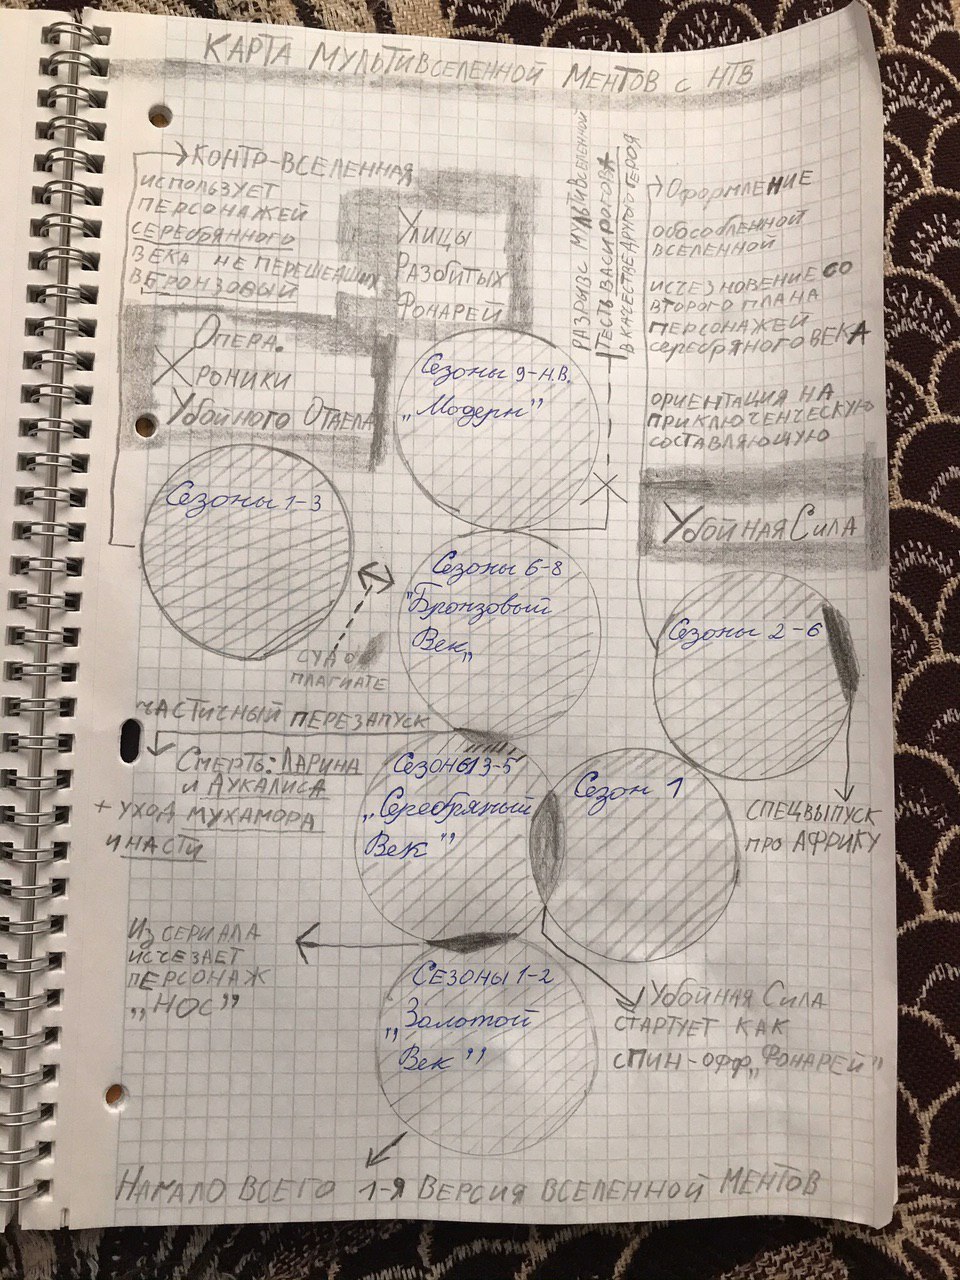 КАРТА МУЛЬТИВСЕЛЕННОЙ МЕНТОВ С НТВ
КОНТР-ВСЕЛЕННАЯ
ИСПОЛЬЗУЕТ
ПЕРСОНАЖЕЙ
СЕРЕБРЯННОГО
ВЕКА НЕ ПЕРЕШЕДШИХ
В БРОНЗОВЫЙ
УЛИЦЫ
РАЗБИТЫХ
ФОНАРЕЙ
РАЗРЫВ С МУЛЬТИВСЕЛЕННОЙ
ТЕСТЬ ВАСИ РОГОВА
В КАЧЕСТВЕ ДРУГОГО ГЕРОЯ
ОФОРМЛЕНИЕ
ОБОСОБЛЕННОЙ
ВСЕЛЕННОЙ
ИСЧЕЗНОВЕНИЕ СО
ВТОРОГО ПЛАНА
ПЕРСОНАЖЕЙ
СЕРЕБРЯНОГО ВЕКА
ОРИЕНТАЦИЯ НА
ПРИКЛЮЧЕНЧЕСКУЮ
СОСТАВЛЯЮЩУЮ
ОПЕРА.
ХРОНИКИ
УБОЙНОГО ОТДЕЛА
Сезоны 9-Н.В.
„Модерн"
Сезоны 1-3
УБОЙНАЯ СИЛА
Сезоны 6-8
"Бронзовый
Век„
Сезоны 2-6
СУД О
ПЛАГИАТЕ
ЧАСТИЧНЫЙ ПЕРЕЗАПУСК
СМЕРТЬ: ЛАРИНА
И ДУКАЛИСА
+ УХОД МУХАМОРА
И НАСТИ
СЕЗОНЫ 3-5
„Серебряный
Век"
Сезон 1
СПЕЦВЫПУСК
ПРО АФРИКУ
ИЗ СЕРИАЛА
ИСЧЕЗАЕТ
ПЕРСОНАЖ
„НОС"
СЕЗОНЫ 1-2
„Золотой
Век"
УБОЙНАЯ СИЛА
СТАРТУЕТ КАК
СПИН-ОФФ „ФОНАРЕЙ"
НАЧАЛО ВСЕГО 1-Я ВЕРСИЯ ВСЕЛЕННОЙ МЕНТОВ